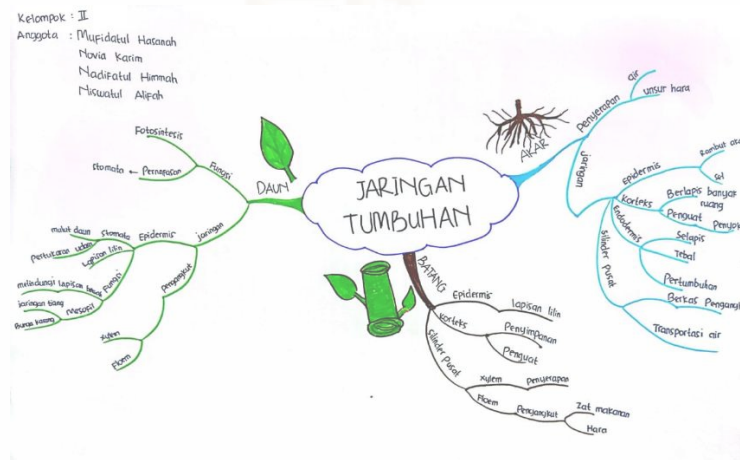 Kelompok : II
Anggota : Mufidatul Hasanah
Novia Karim
Nadifatul Himmah
Niswatul Alifah
JARINGAN
TUMBUHAN
DAUN
Fungsi
Fotosintesis
Pernapasan
stomata
jaringan
Epidermis
Stomata
mulut daun
Pertukaran udara
Lapisan lilin
Fungsi
melindungi lapisan
Mesofil
jaringan tiang
Bunga karang
pengangkut
xylem
Floem
AKAR
Penyerapan
air
unsur hara
jaringan
Epidermis
Rambut
Sel
Korteks
Berlapis banyak
ruang
Penguat
Endodermis
Selapis
Tebal
Pertumbuhan
Silinder Pusat
Berkas
Transportasi air
BATANG
Epidermis
lapisan lilin
Korteks
Penyimpanan
Penguat
Silinder Pusat
xylem
penyerapan
Floem
Pengangkut
Zat makanan
Hara